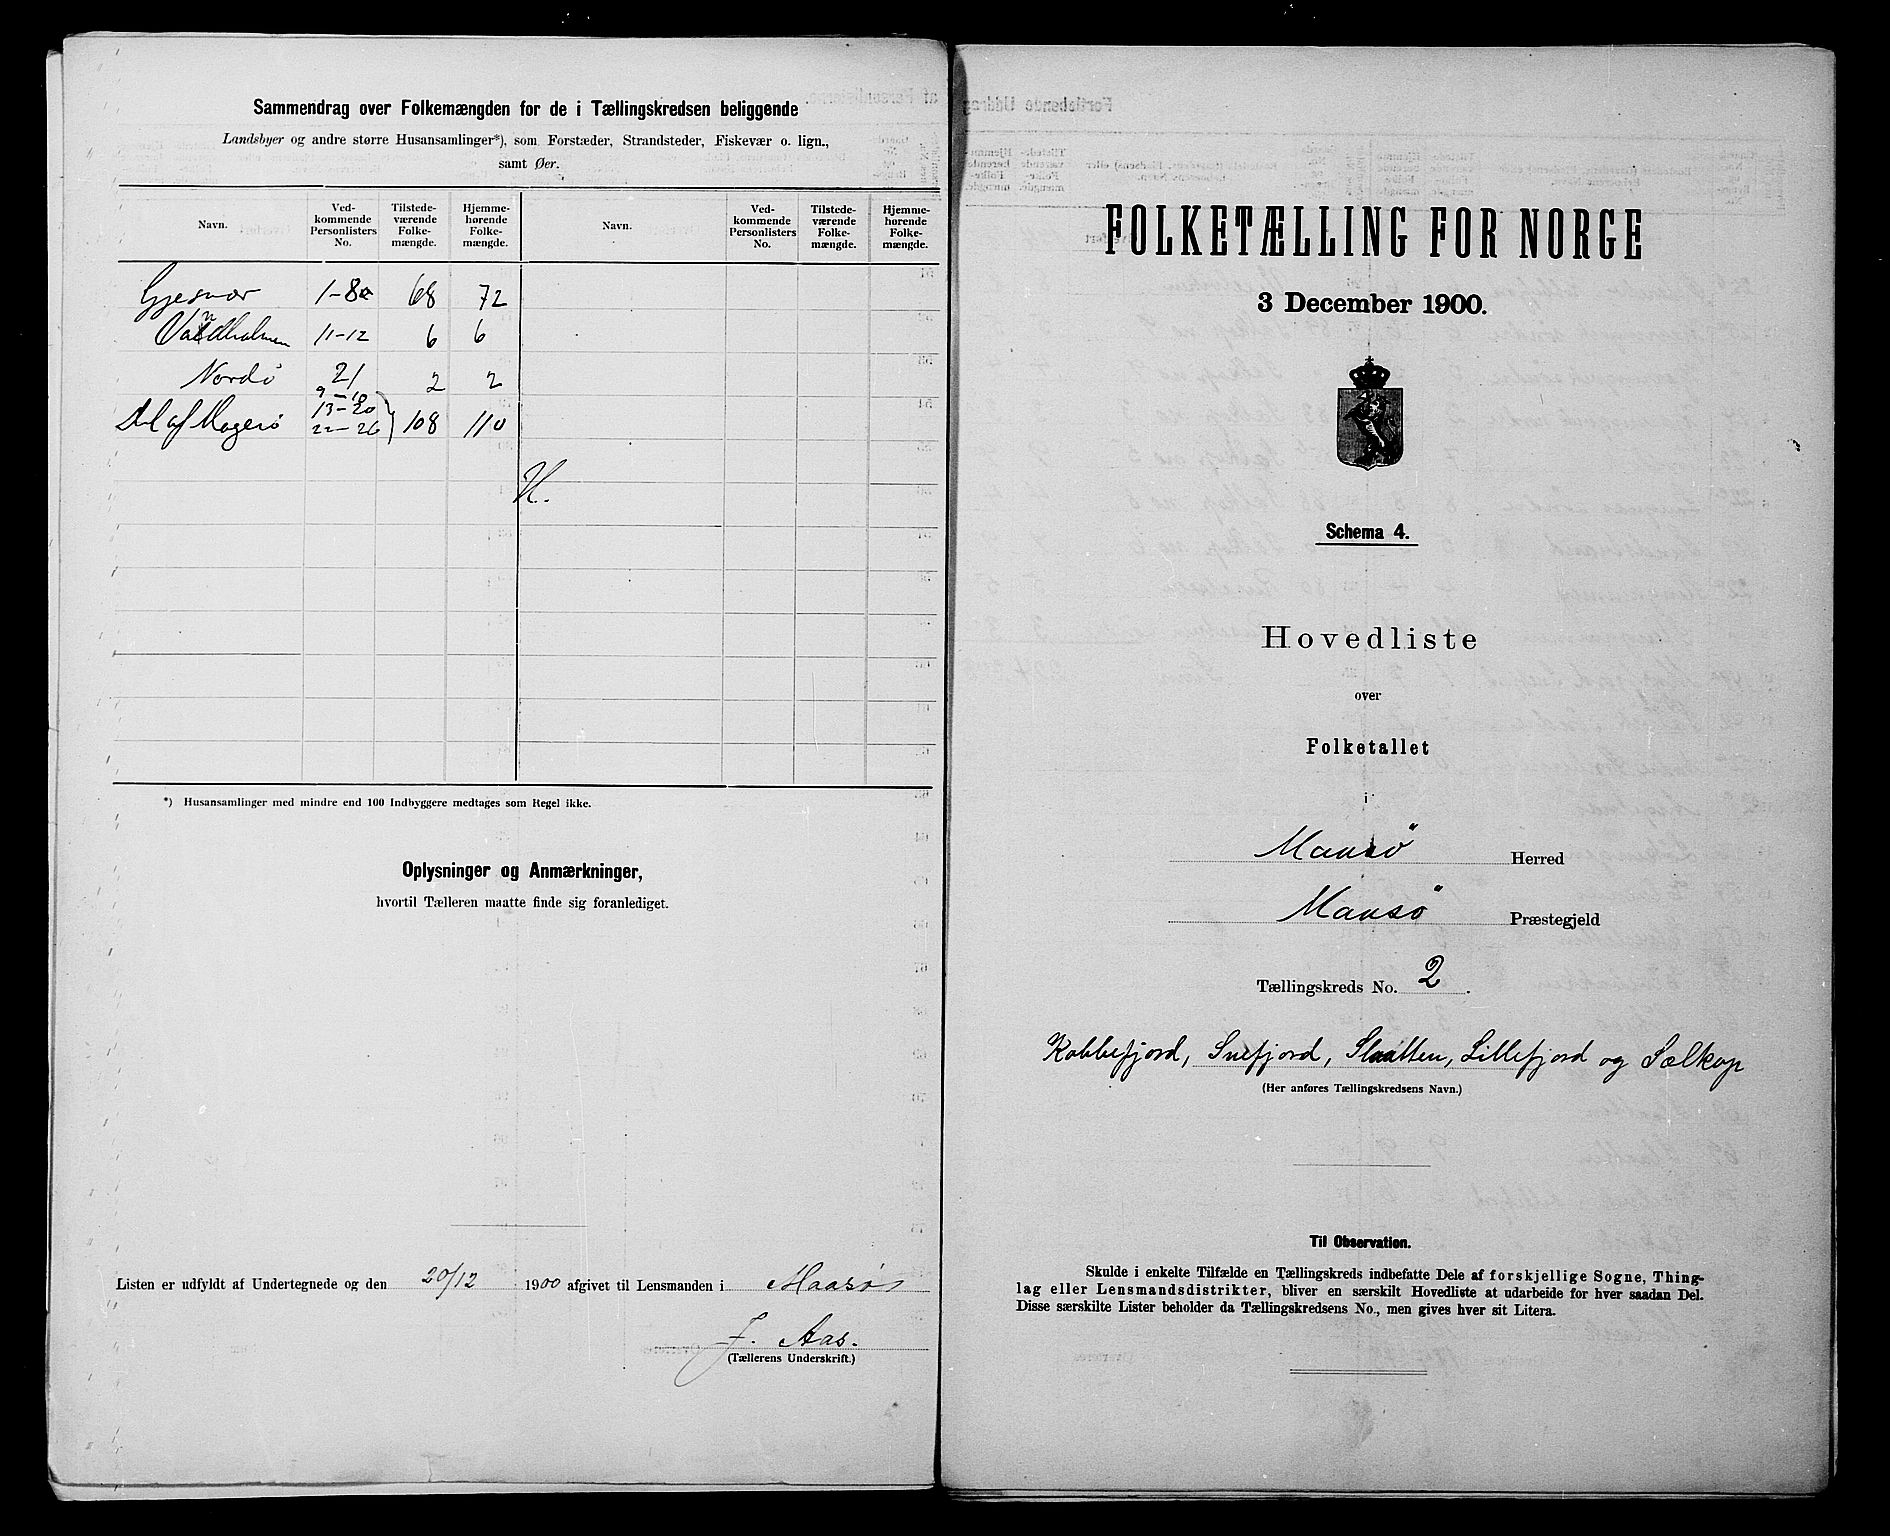 Sammendrag over Folkemængden for de i Tællingskredsen beliggende
Landsbyer og andre større Husansamlinger*), som Forstæder, Strandsteder, Fiskevær o. lign.,
samt Øer.
Navn. Ved-kommende Personlisters No. Tilstede-værende Folke-mængde. Hjemme-hørende Folke-mængde. Navn. Ved-kommende Personlisters No. Tilstede-værende Folke-mængde. Hjemme-hørende Folke-mængde.
Gjesvær 1-8a 68 72
Vandholmen 11-12 6 6
Nordø 21 2 2
9-10
Del af Magerø 13-20 108 110
22-26
H.
*) Husansamlinger med mindre end 100 Indbyggere medtages som Regel ikke.
Oplysninger og Anmærkninger,
hvortil Tælleren maatte finde sig foranlediget.
Listen er udfyldt af Undertegnede og den 20/12 1900 afgivet til Lensmanden i Maasø
J. Aas.
(Tællerens Underskrift.)
FOLKETÆLLING FOR NORGE
3 December 1900.
Schema 4.
Hovedliste
over
Folketallet
i
Maasø Herred
Maasø Præstegjeld
Tællingskreds No. 2.
Kobbefjord, Snefjord, Slaatten, Lillefjord og Sælkop
(Her anføres Tællingskredsens Navn.)
Til Observation.
Skulde i enkelte Tilfælde en Tællingskreds indbefatte Dele af forskjellige Sogne, Thing-
lag eller Lensmandsdistrikter, bliver en særskilt Hovedliste at udarbeide for hver saadan Del.
Disse særskilte Lister beholder da Tællingskredsens No., men gives hver sit Litera.